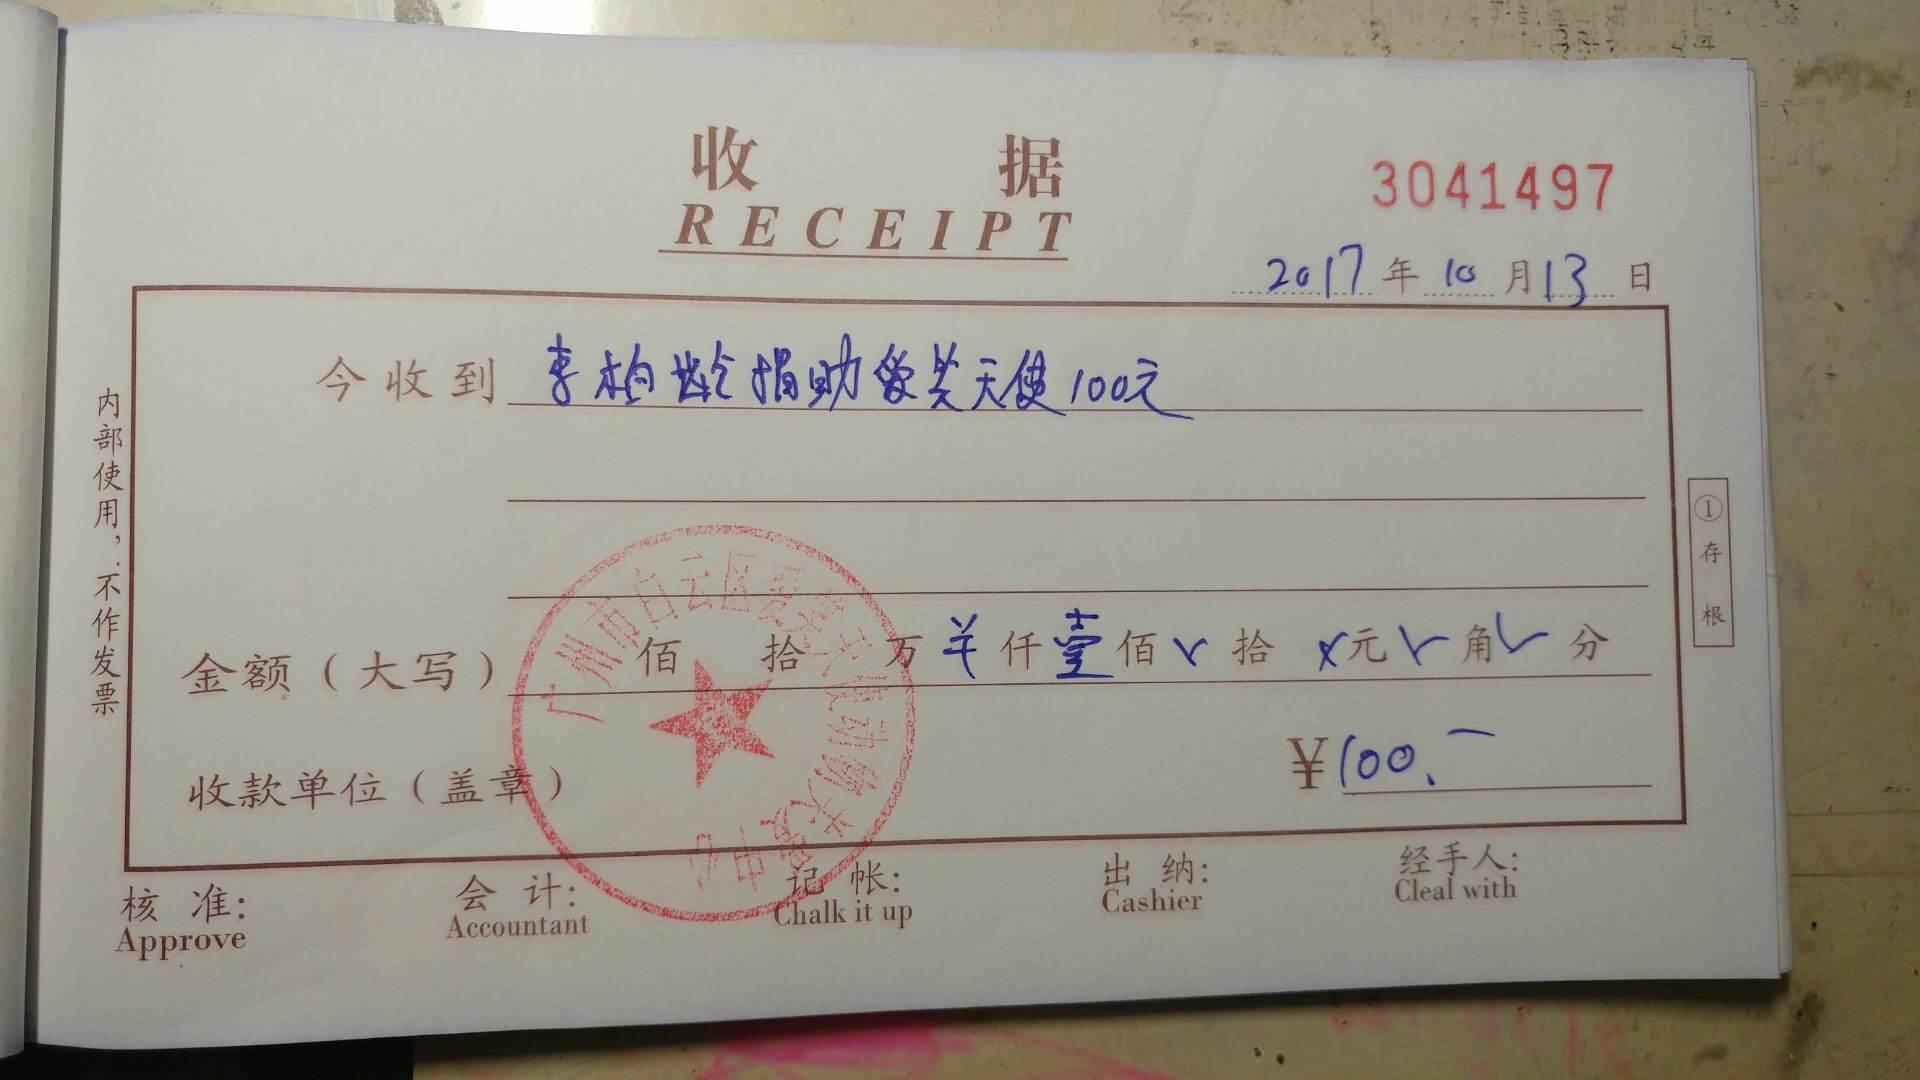 收 据
RECEIPT
3041497
2017年10月13日
今收到 李柏龄捐助爱芺天使100元
金额（大写） 佰 拾 万 羊 仟 壹 佰 拾 元 角 分
收款单位（盖章） ¥100.—
广州市白云区
动物关爱中心
内部使用，不作发票
①存根
核 准: 会 计: 记 帐: 出 纳: 经手人:
Approve Accountant Chalk it up Cashier Cleal with